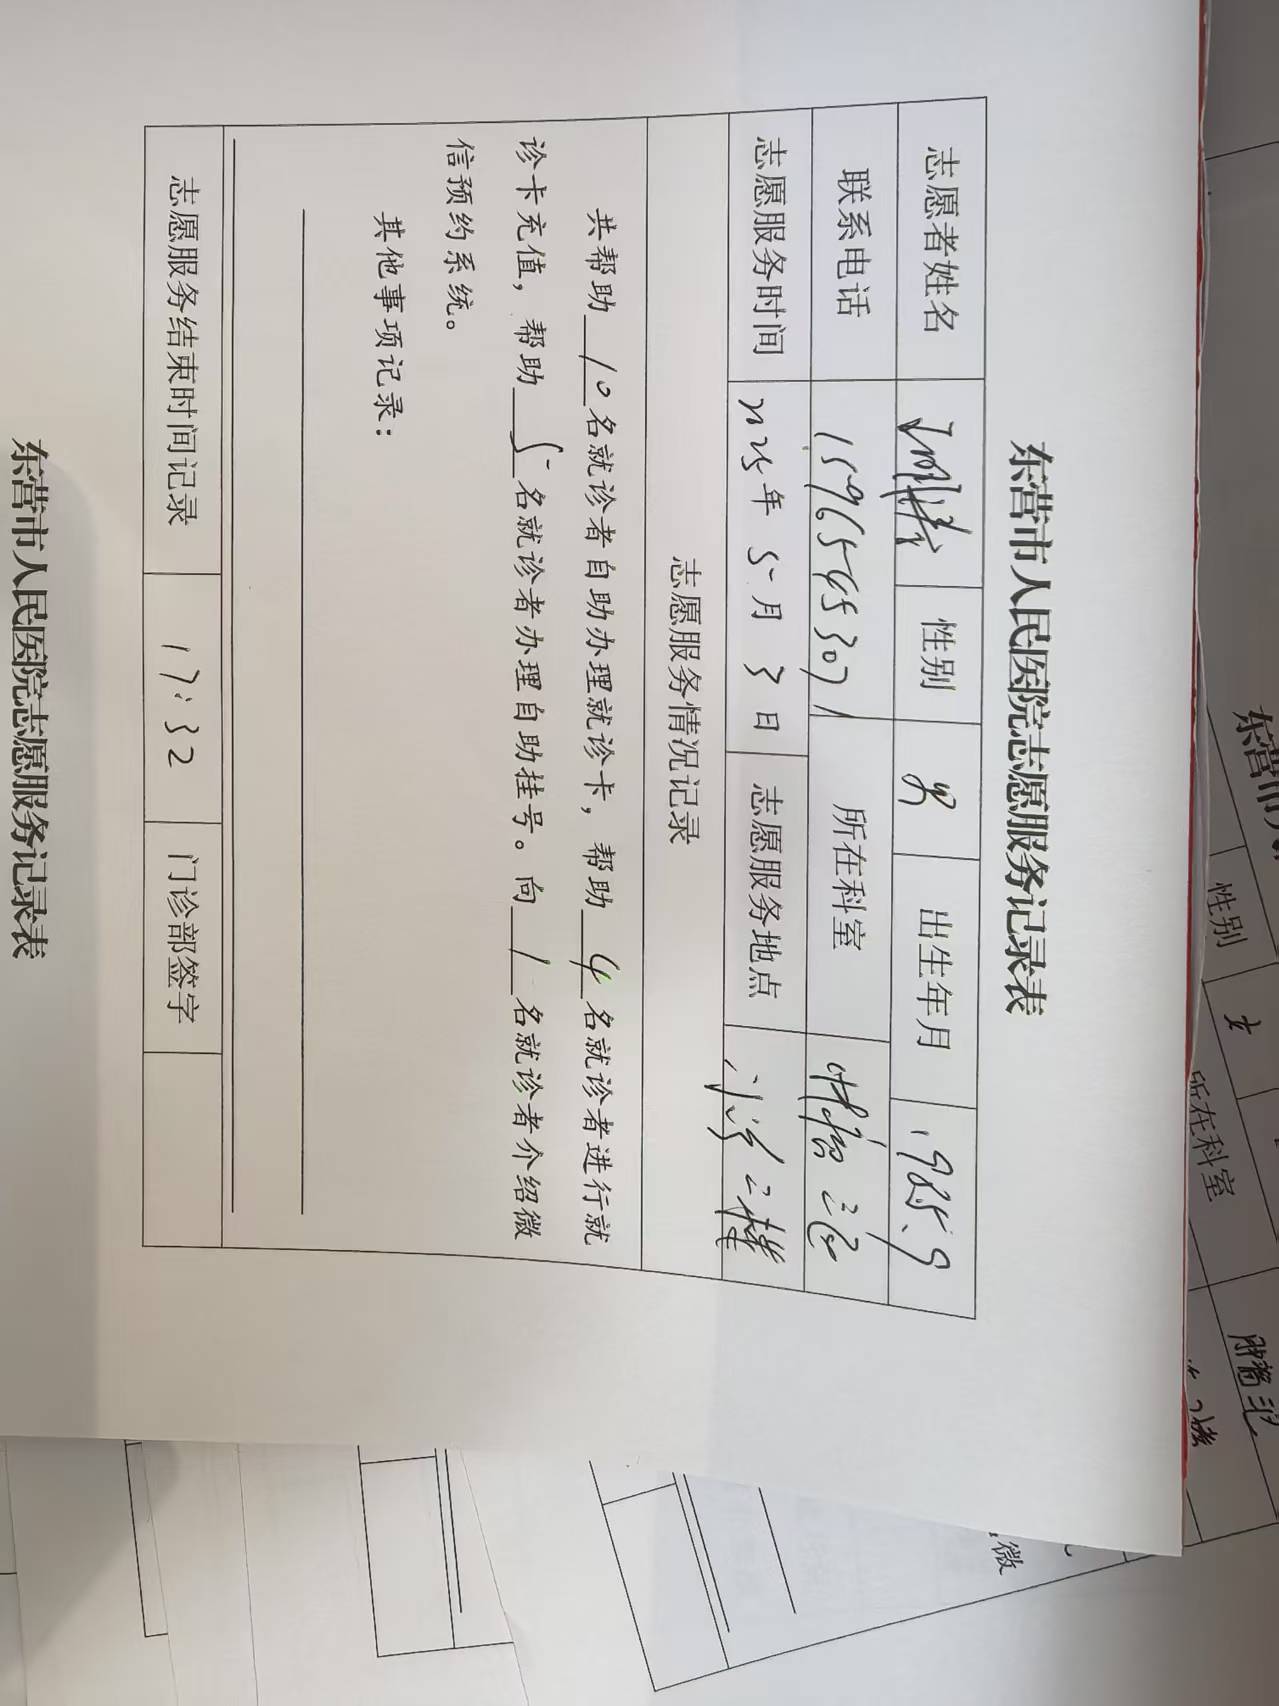 东营市人民医院志愿服务记录表
志愿者姓名 性别 男 出生年月 1985.9
联系电话 15965453071 所在科室 肿瘤二区
志愿服务时间 2025年 5月 3日 志愿服务地点 门诊二楼
志愿服务情况记录
共帮助 10 名就诊者自助办理就诊卡，帮助 4 名就诊者进行就
诊卡充值，帮助 5 名就诊者办理自助挂号。向 1 名就诊者介绍微
信预约系统。
其他事项记录：
志愿服务结束时间记录 17:32 门诊部签字
东营市人民医院志愿服务记录表
东营市人
性别 女
所在科室 肿瘤
微